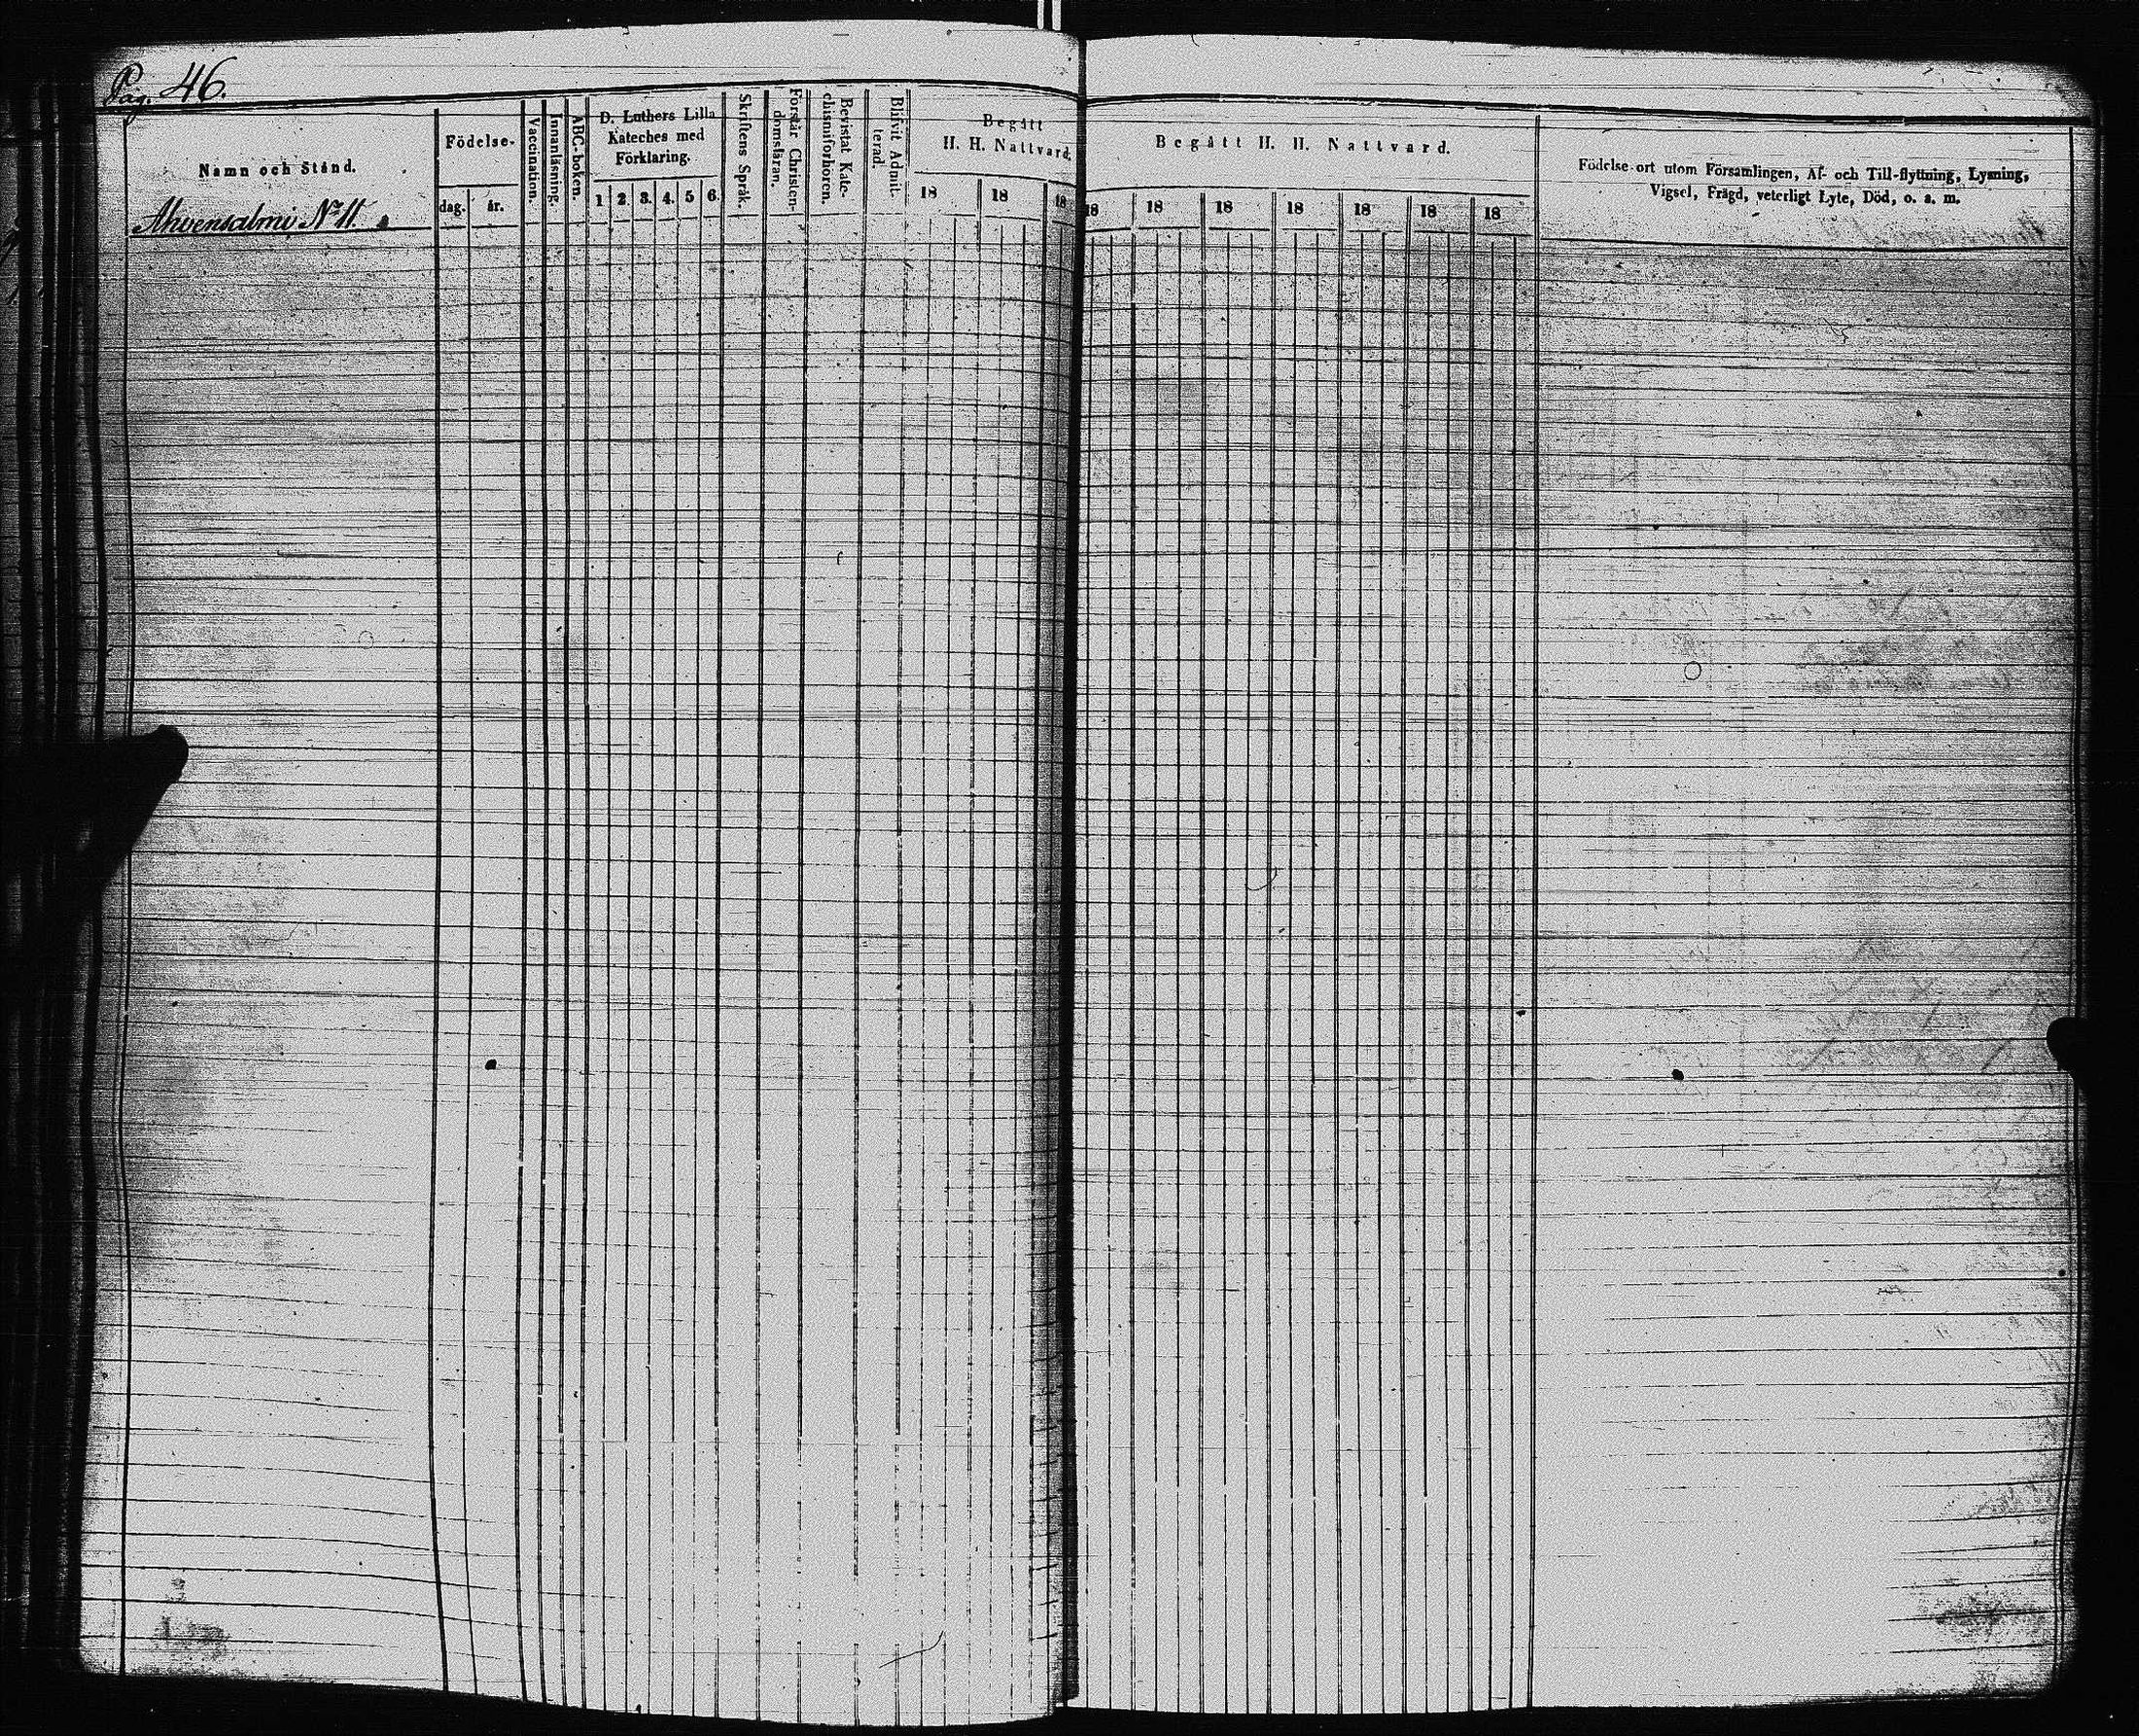 Pag. 46.
Namn och Stånd.
Ahvensalmi No 11.
Födelse-
dag. år.
Vaccination.
Innanläsning.
ABC-boken.
D. Luthers Lilla
Kateches med
Förklaring.
1 2. 3. 4. 5 6.
Skriftens Språk.
Förstår Christen-
domsläran.
Bevistat Kate-
chismiförhören.
Blifvit Admit-
terad.
Begått
H. H. Nattvard.
18 18 18
Begått H. H. Nattvard.
18 18 18 18 18 18 18
Födelse-ort utom Församlingen, Af- och Till-flyttning, Lysning,
Vigsel, Frägd, veterligt Lyte, Död, o. s. m.